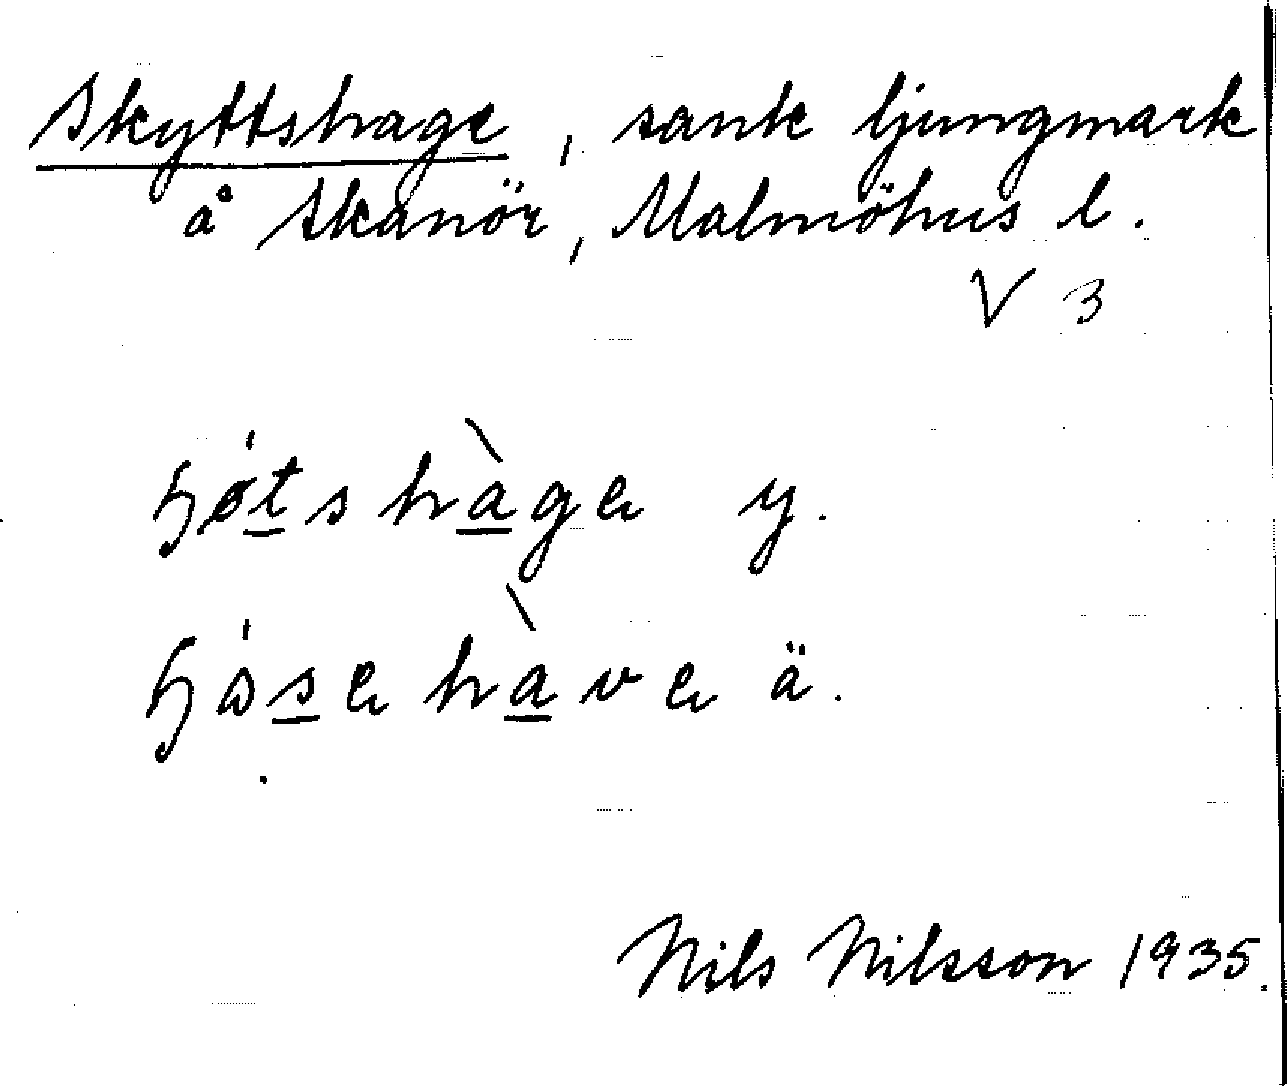 Skyttshage, sank ljungmark
å Skanör, Malmöhus l.
V 3
y.
ä.
Nils Nilsson 1935.